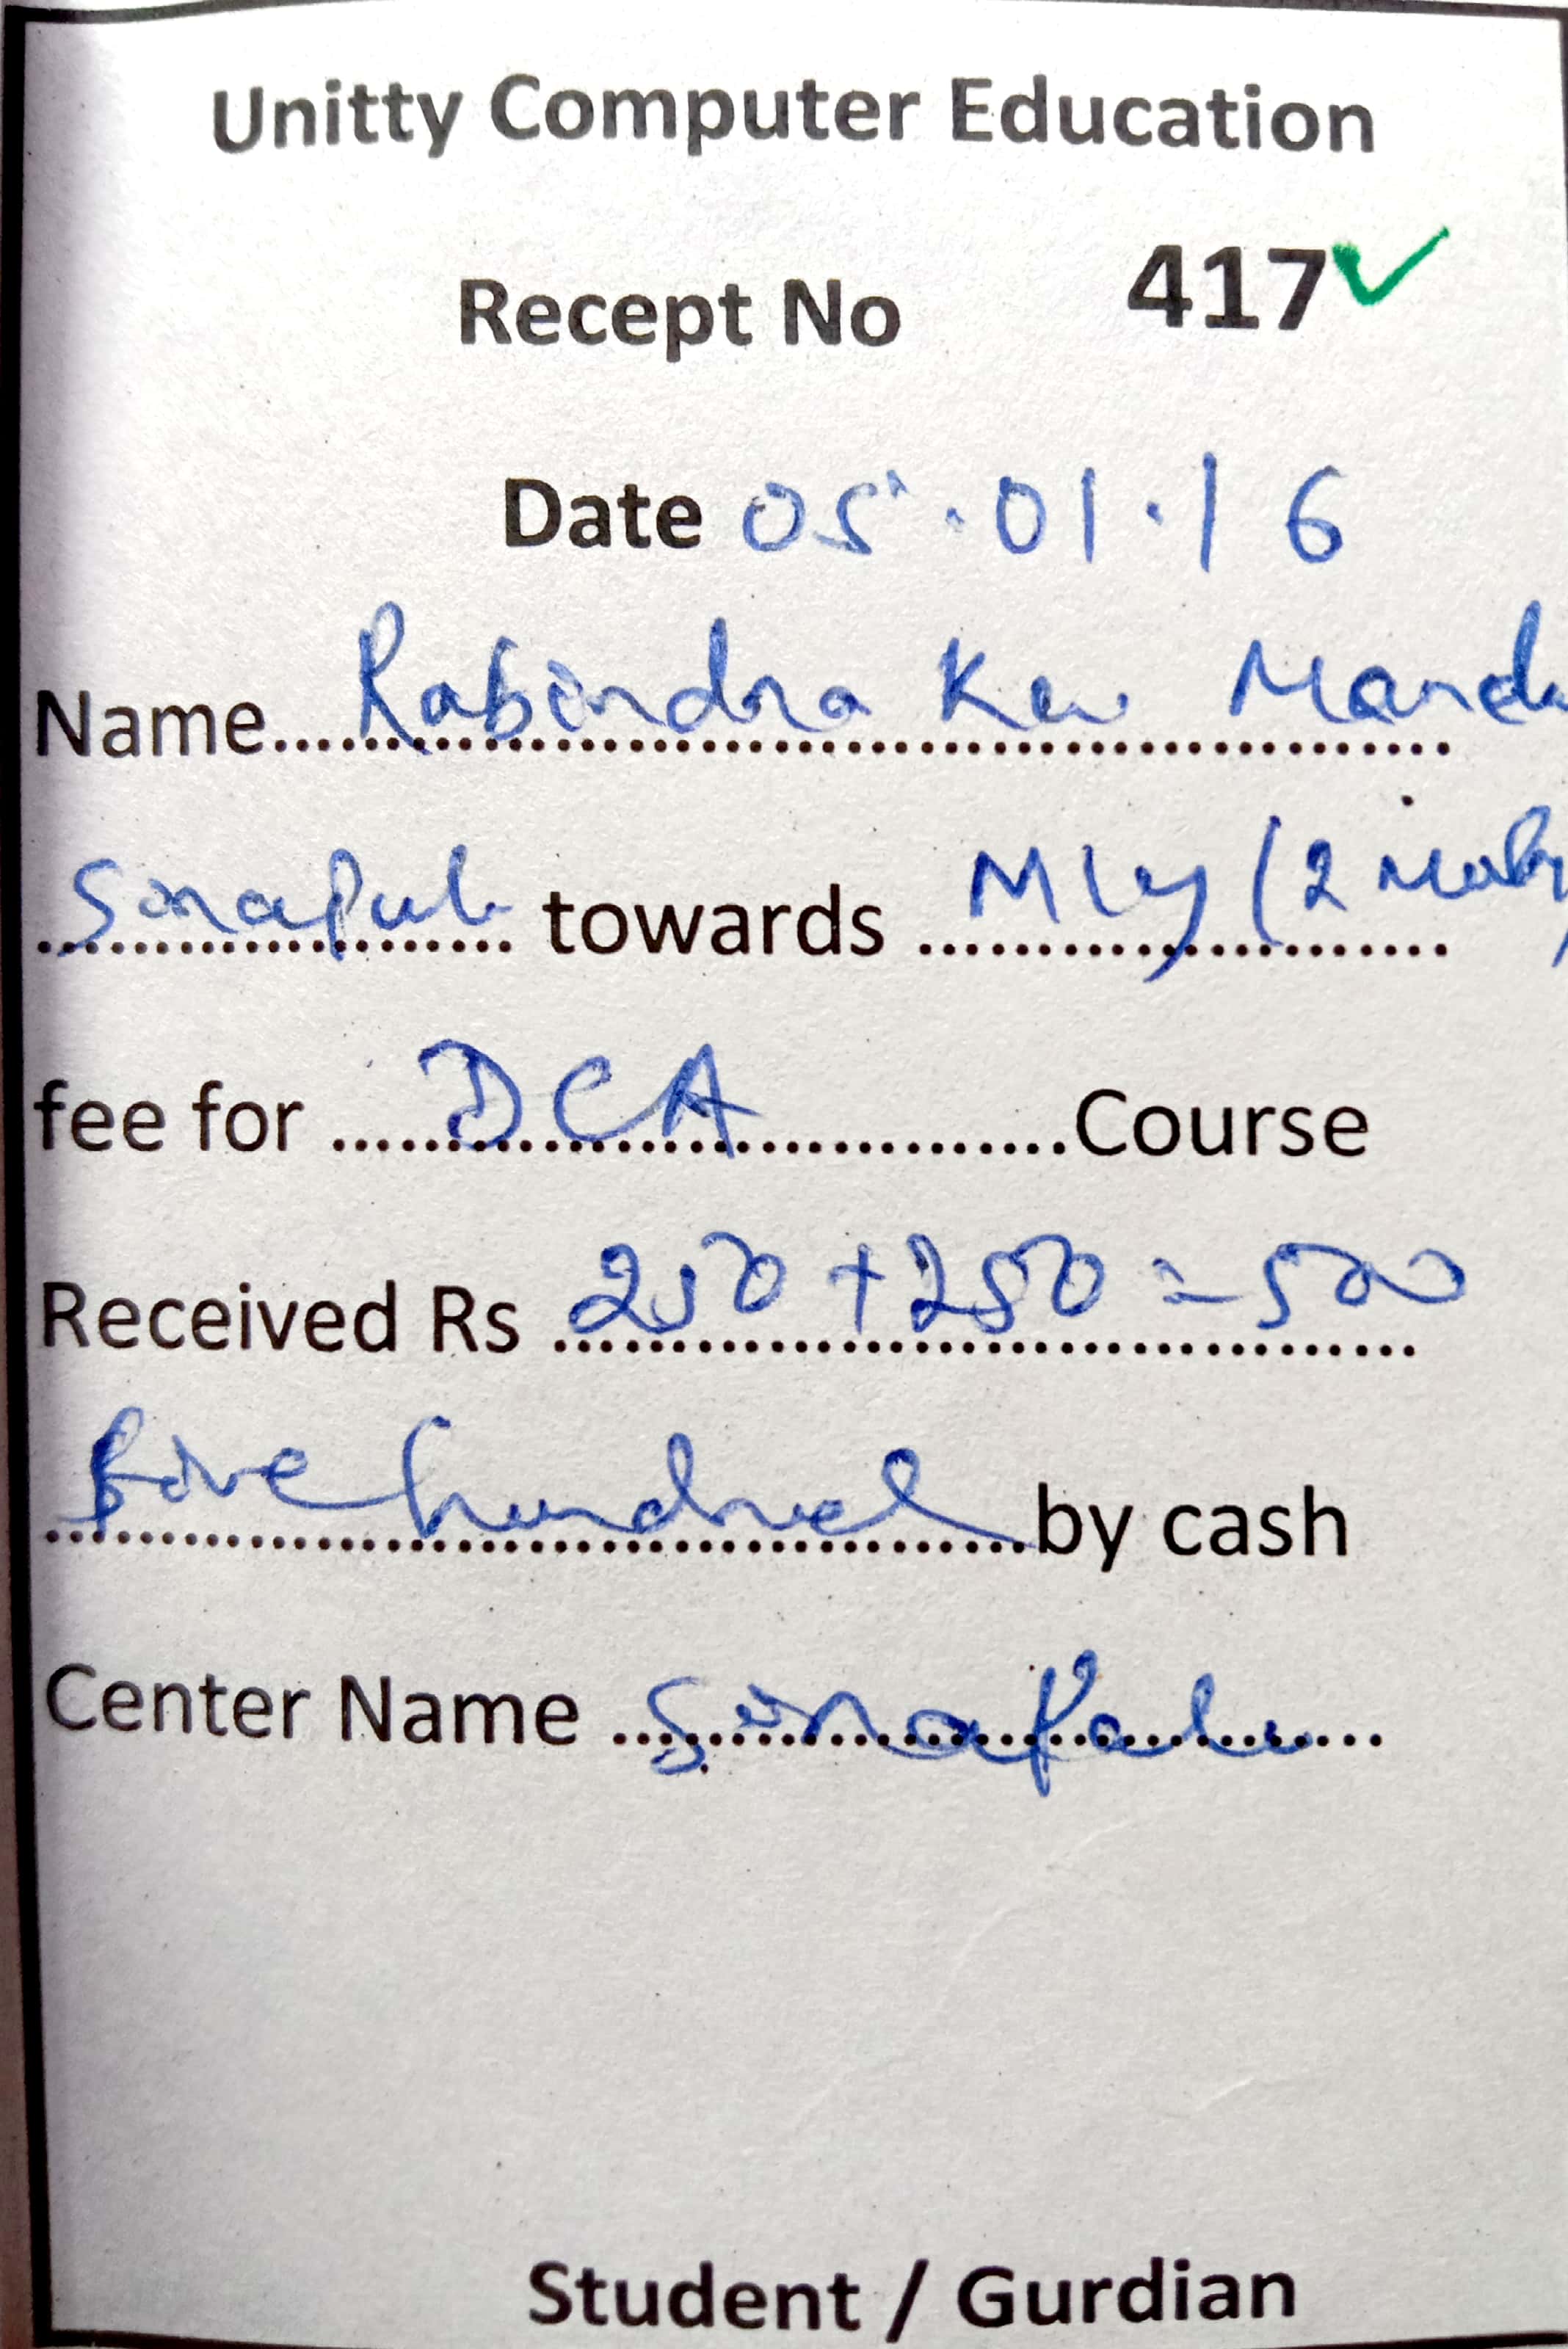 Unitty Computer Education
Recept No 417
Date 05.01.16
Name Rabindra
towards Mly (2
fee for DCA Course
Received Rs 250 + 250 = 500
five hundred by cash
Center Name
Student / Gurdian